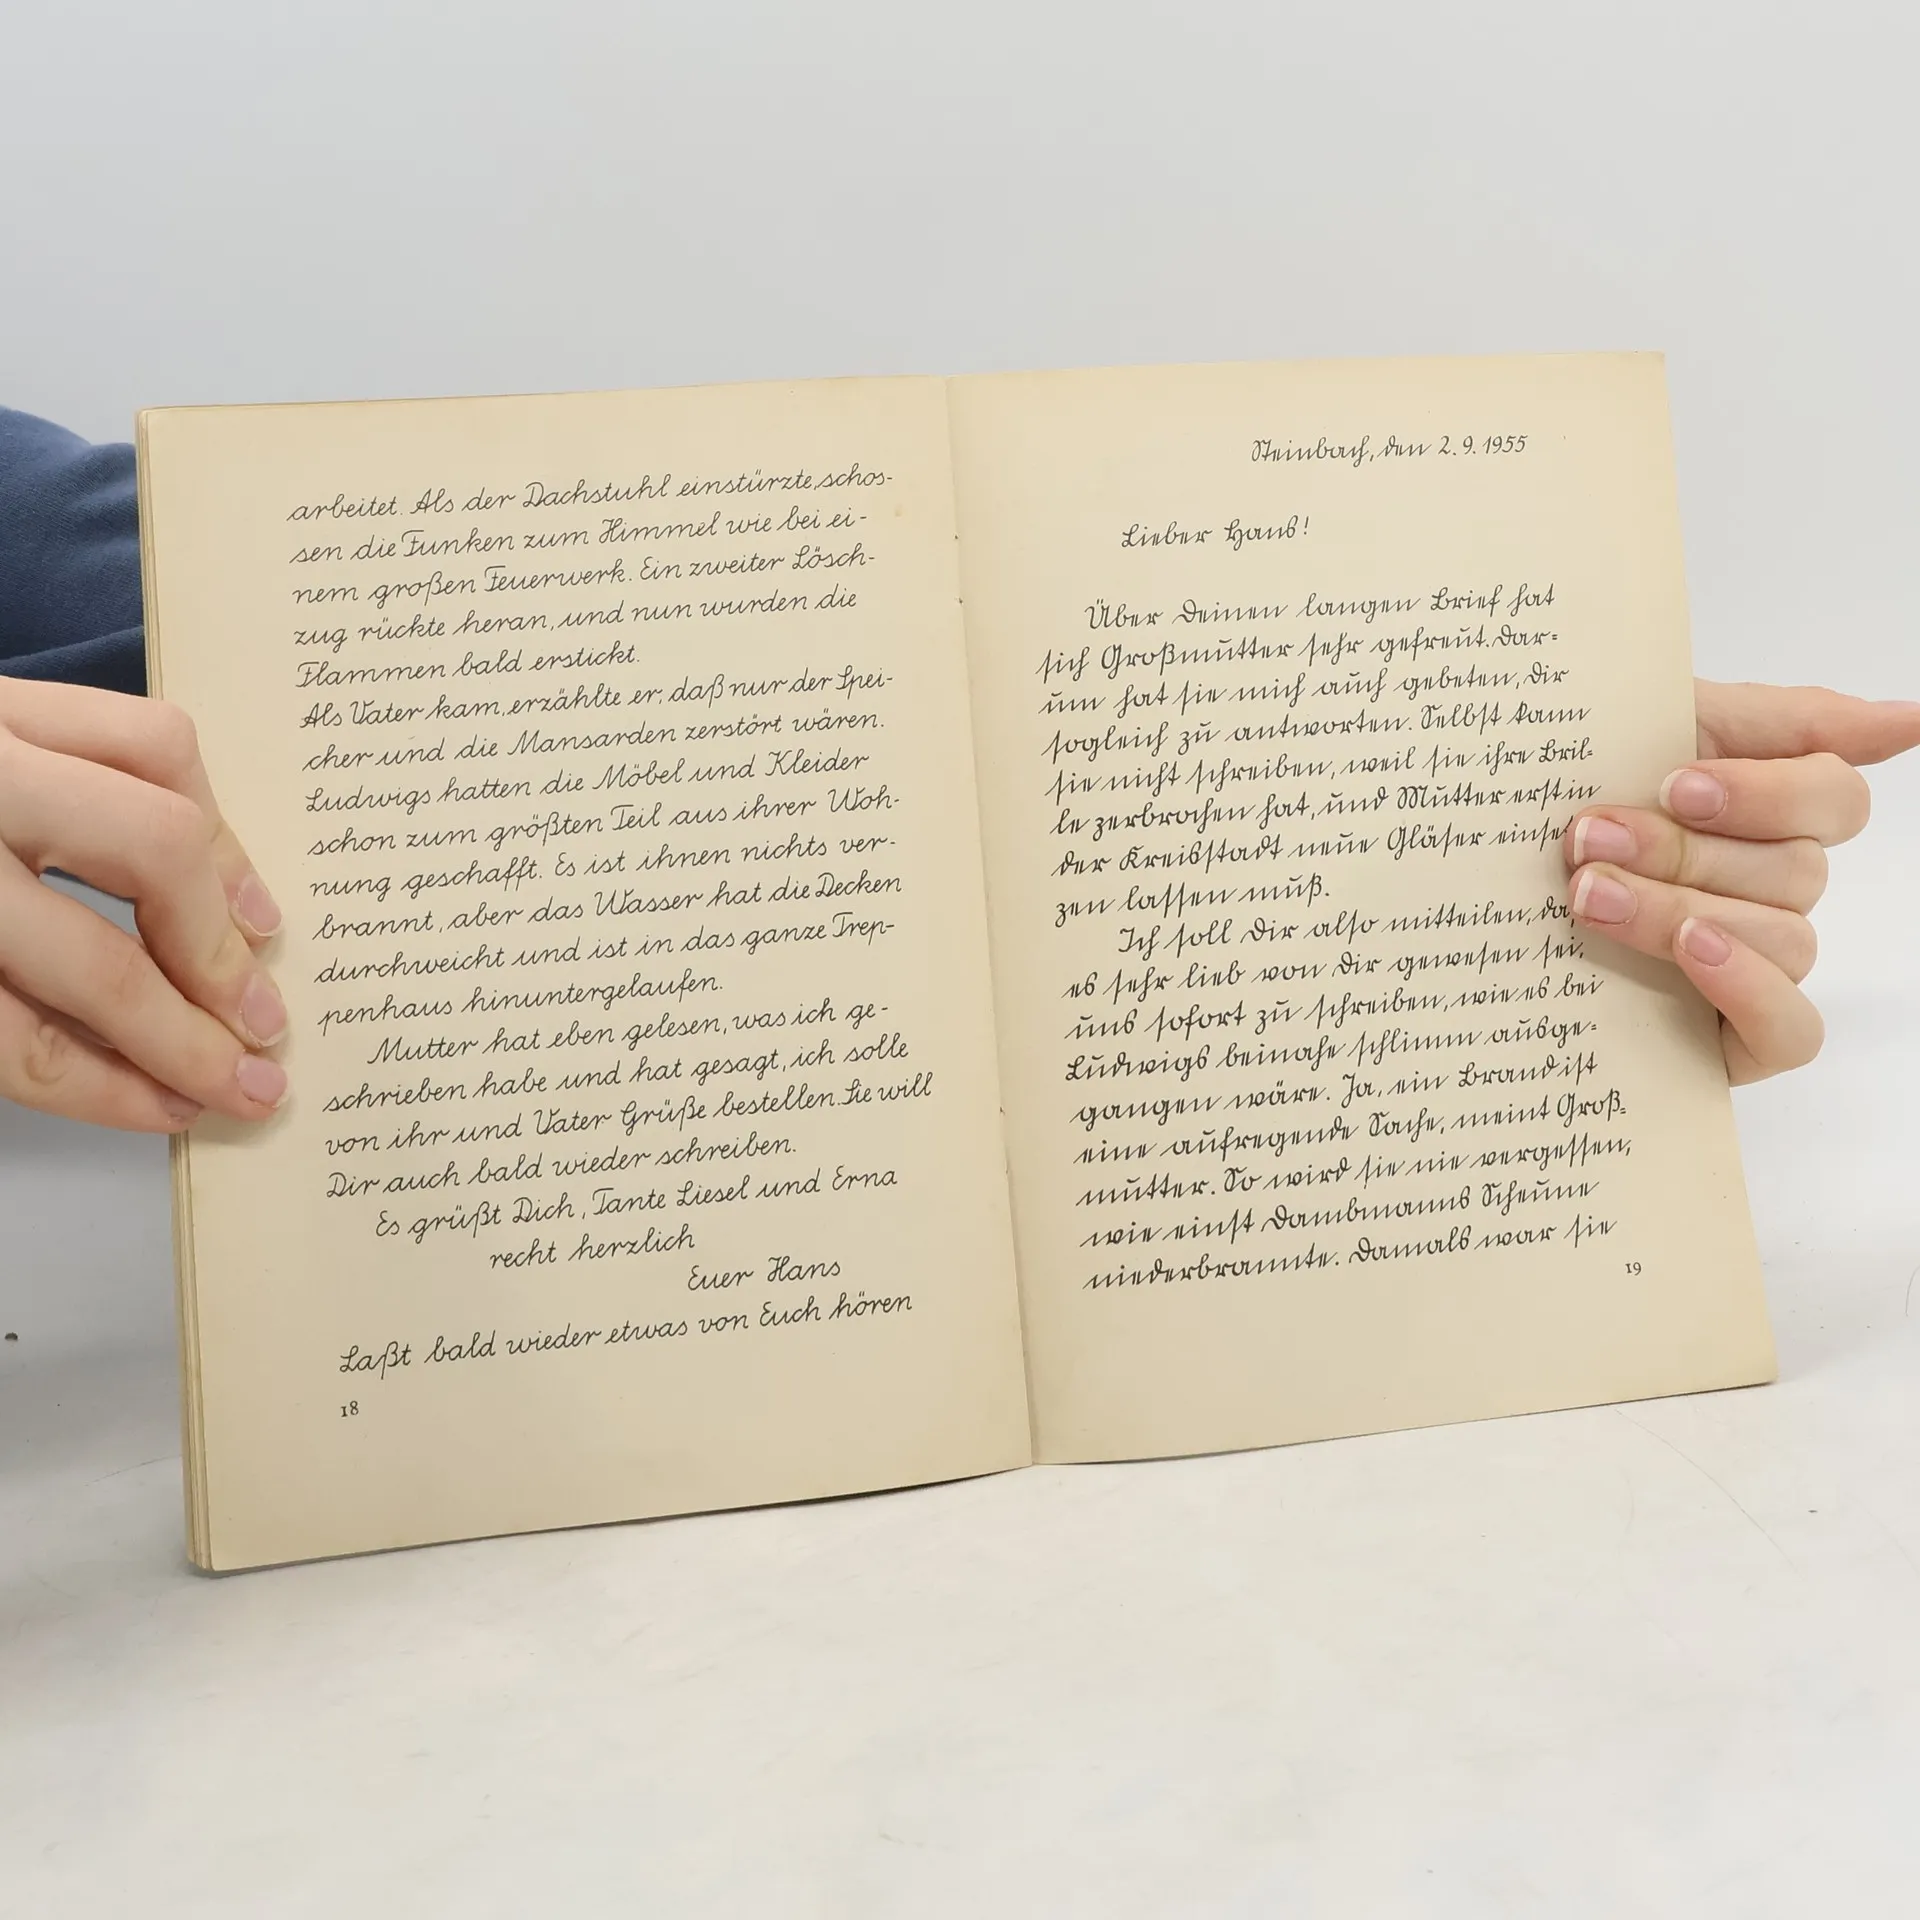 arbeitet. Als der Dachstuhl einstürzte, schos-
sen die Funken zum Himmel wie bei ei-
nem großen Feuerwerk. Ein zweiter Lösch-
zug rückte heran, und nun wurden die
Flammen bald erstickt.
Als Vater kam, erzählte er, daß nur der Spei-
cher und die Mansarden zerstört wären.
Ludwigs hatten die Möbel und Kleider
schon zum größten Teil aus ihrer Woh-
nung geschafft. Es ist ihnen nichts ver-
brannt, aber das Wasser hat die Decken
durchweicht und ist in das ganze Trep-
penhaus hinuntergelaufen.
Mutter hat eben gelesen, was ich ge-
schrieben habe und hat gesagt, ich solle
von ihr und Vater Grüße bestellen. Sie will
Dir auch bald wieder schreiben.
Es grüßt Dich, Tante Liesel und Erna
recht herzlich
Euer Hans
Laßt bald wieder etwas von Euch hören
18
Steinbach, den 2.9.1955
Lieber Hans!
Über Deinen langen Brief hat
sich Großmutter sehr gefreut. Dar-
um hat sie mich auch gebeten, Dir
sogleich zu antworten. Selbst kann
sie nicht schreiben, weil sie ihre Bril-
le zerbrochen hat, und Mutter erst in
der Kreisstadt neue Gläser einse
zen lassen muß.
Ich soll Dir also mitteilen, da
es sehr lieb von Dir gewesen sei,
uns sofort zu schreiben, wie es bei
Ludwigs beinahe schlimm ausge-
gangen wäre. Ja, ein Brand ist
eine aufregende Sache, meint Groß-
mutter. So wird sie nie vergessen,
wie einst Dambmanns Scheune
niederbrannte. Damals war sie
19